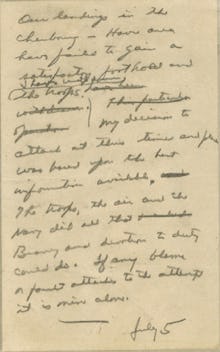 Our landings in the
Cherbourg - Havre area
have failed to gain a
satisfactory foothold and
I have withdrawn
the troops. have been
withdrawn.
This particular
operation
My decision to
attack at this time and place
was based upon the best
information available, and
The troops, the air and the
Navy did all that
Bravery and devotion to duty
could do. If any blame
or fault attaches to the attempt
it is mine alone.
July 5